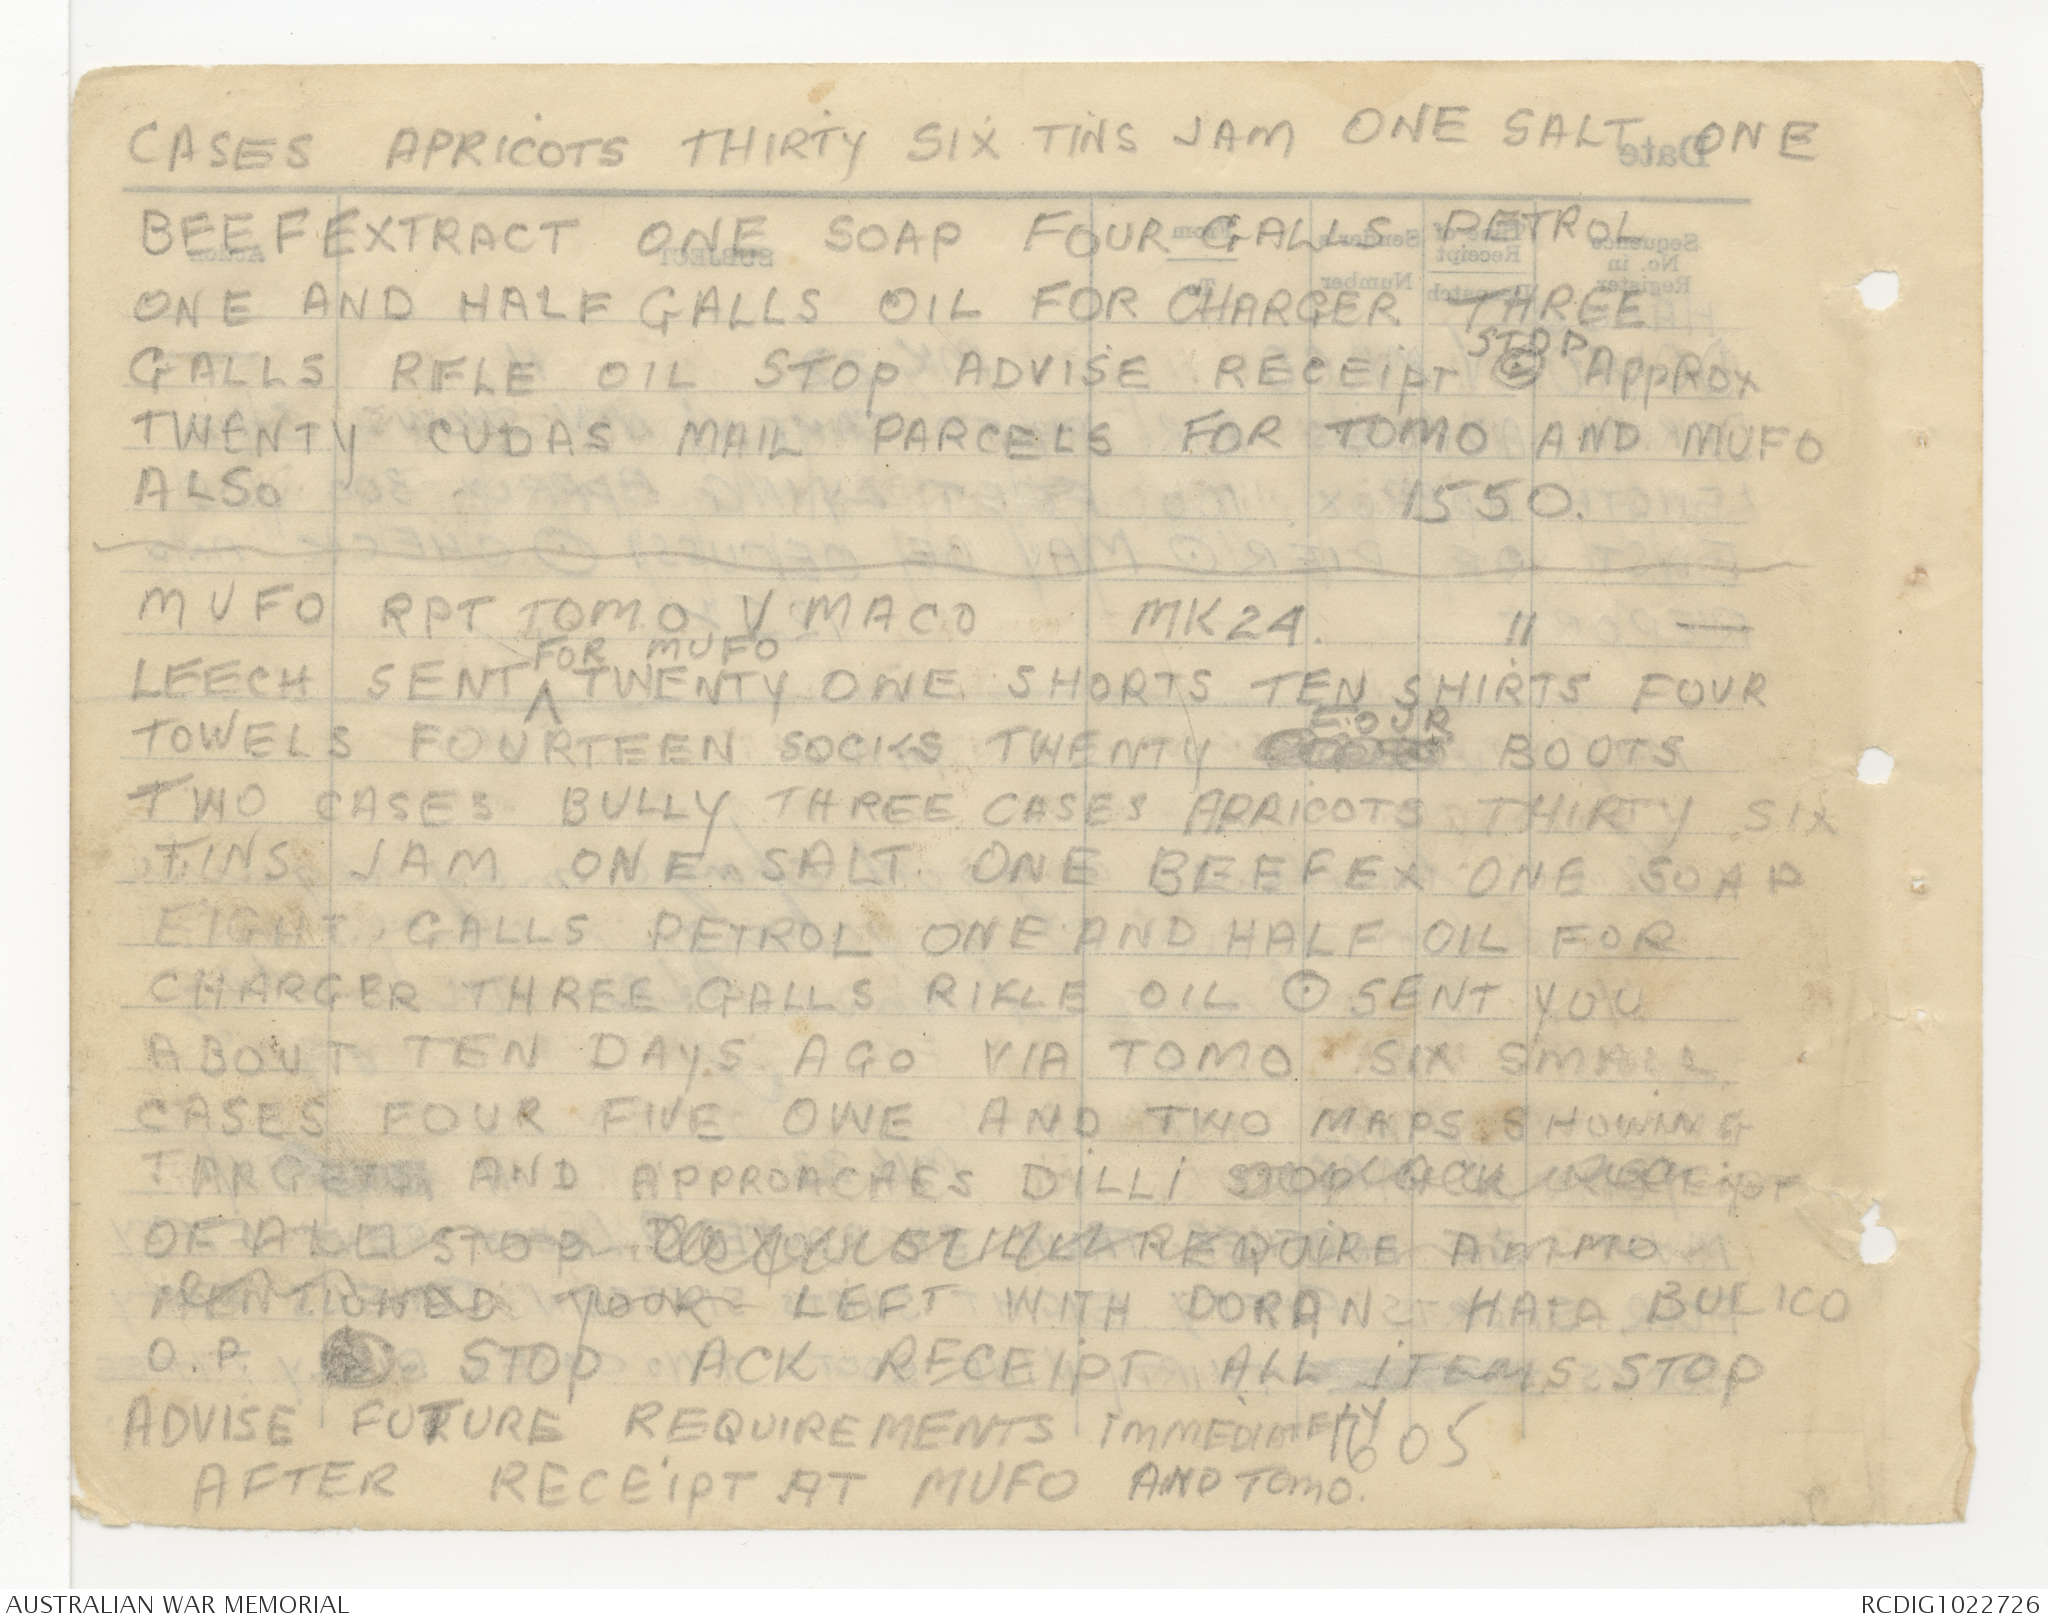 CASES APRICOTS THIRTY SIX TINS JAM ONE SALT ONE
BEEFEXTRACT ONE SOAP FOUR GALLS PETROL
ONE AND HALF GALLS OIL FOR CHARGER THREE
STOP
GALLS RIFLE OIL STOP ADVISE RECEIPT APPROX
TWENTY CUDAS MAIL PARCELS FOR TOMO AND MUFO
ALSO 1550.
MUFO RPT TOMO V MACO MK24. 11 —
FOR MUFO
LEECH SENT TWENTY ONE SHORTS TEN SHIRTS FOUR
FOUR
TOWELS FOURTEEN SOCKS TWENTY BOOTS
TWO CASES BULLY THREE CASES APRICOTS THIRTY SIX
TINS JAM ONE SALT ONE BEEFEX ONE SOAP
EIGHT GALLS PETROL ONE AND HALF OIL FOR
CHARGER THREE GALLS RIFLE OIL ⊙ SENT YOU
ABOUT TEN DAYS AGO VIA TOMO SIX SMALL
CASES FOUR FIVE OWE AND TWO MAPS SHOWING
TARGETS AND APPROACHES DILLI STOP ACK RECEIPT
OF ALL STOP STILL REQUIRE AMMO
MENTIONED YOUR LEFT WITH DORAN HATA BULICO
O.P. STOP ACK RECEIPT ALL ITEMS STOP
ADVISE FUTURE REQUIREMENTS IMMEDIATELY 1605
AFTER RECEIPT AT MUFO AND TOMO.
Date
Sequence No. in Register
Time of Receipt
Despatch
Sender's Number
From
To
SUBJECT
Action
AUSTRALIAN WAR MEMORIAL
RCDIG1022726